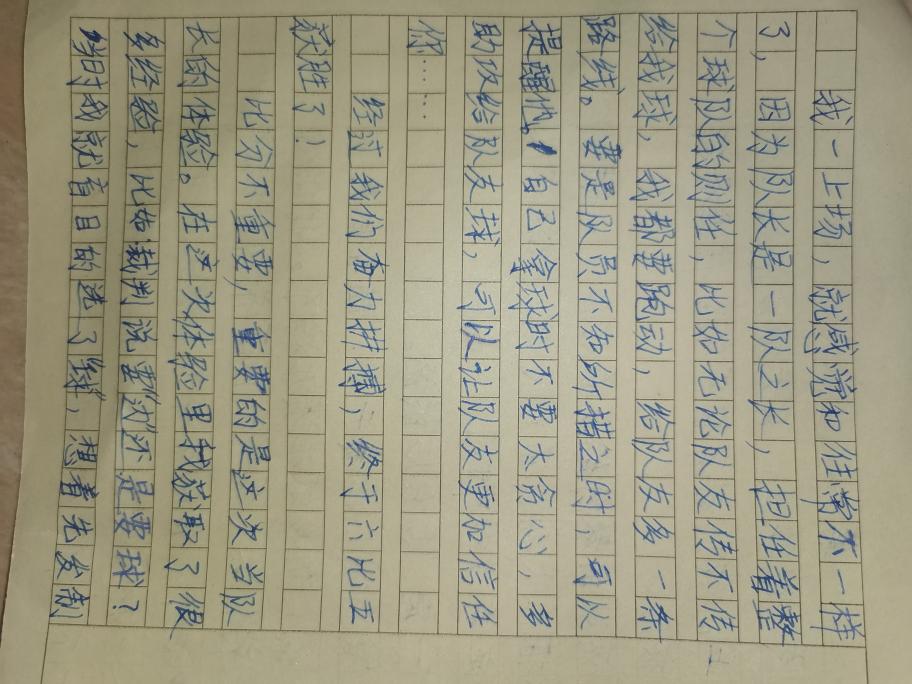 我一上场，就感觉和往常不一样
了，因为队长是一队之长，担任着整
个球队的责任，比如无论队友传不传
给我球，我都要跑动，给队友多一条
路线。要是队员不知所措之时，可以
提醒他。自己拿球时不要太贪心，多
助攻给队友球，可以让队友更加信任
你……
经过我们奋力拼搏，终于六比五
获胜了！
比分不重要，重要的是这次当队
长的体验。在这次体验里我获取了很
多经验，比如裁判说要边还是要球？
当时我就盲目的选了“球”，想着先发制